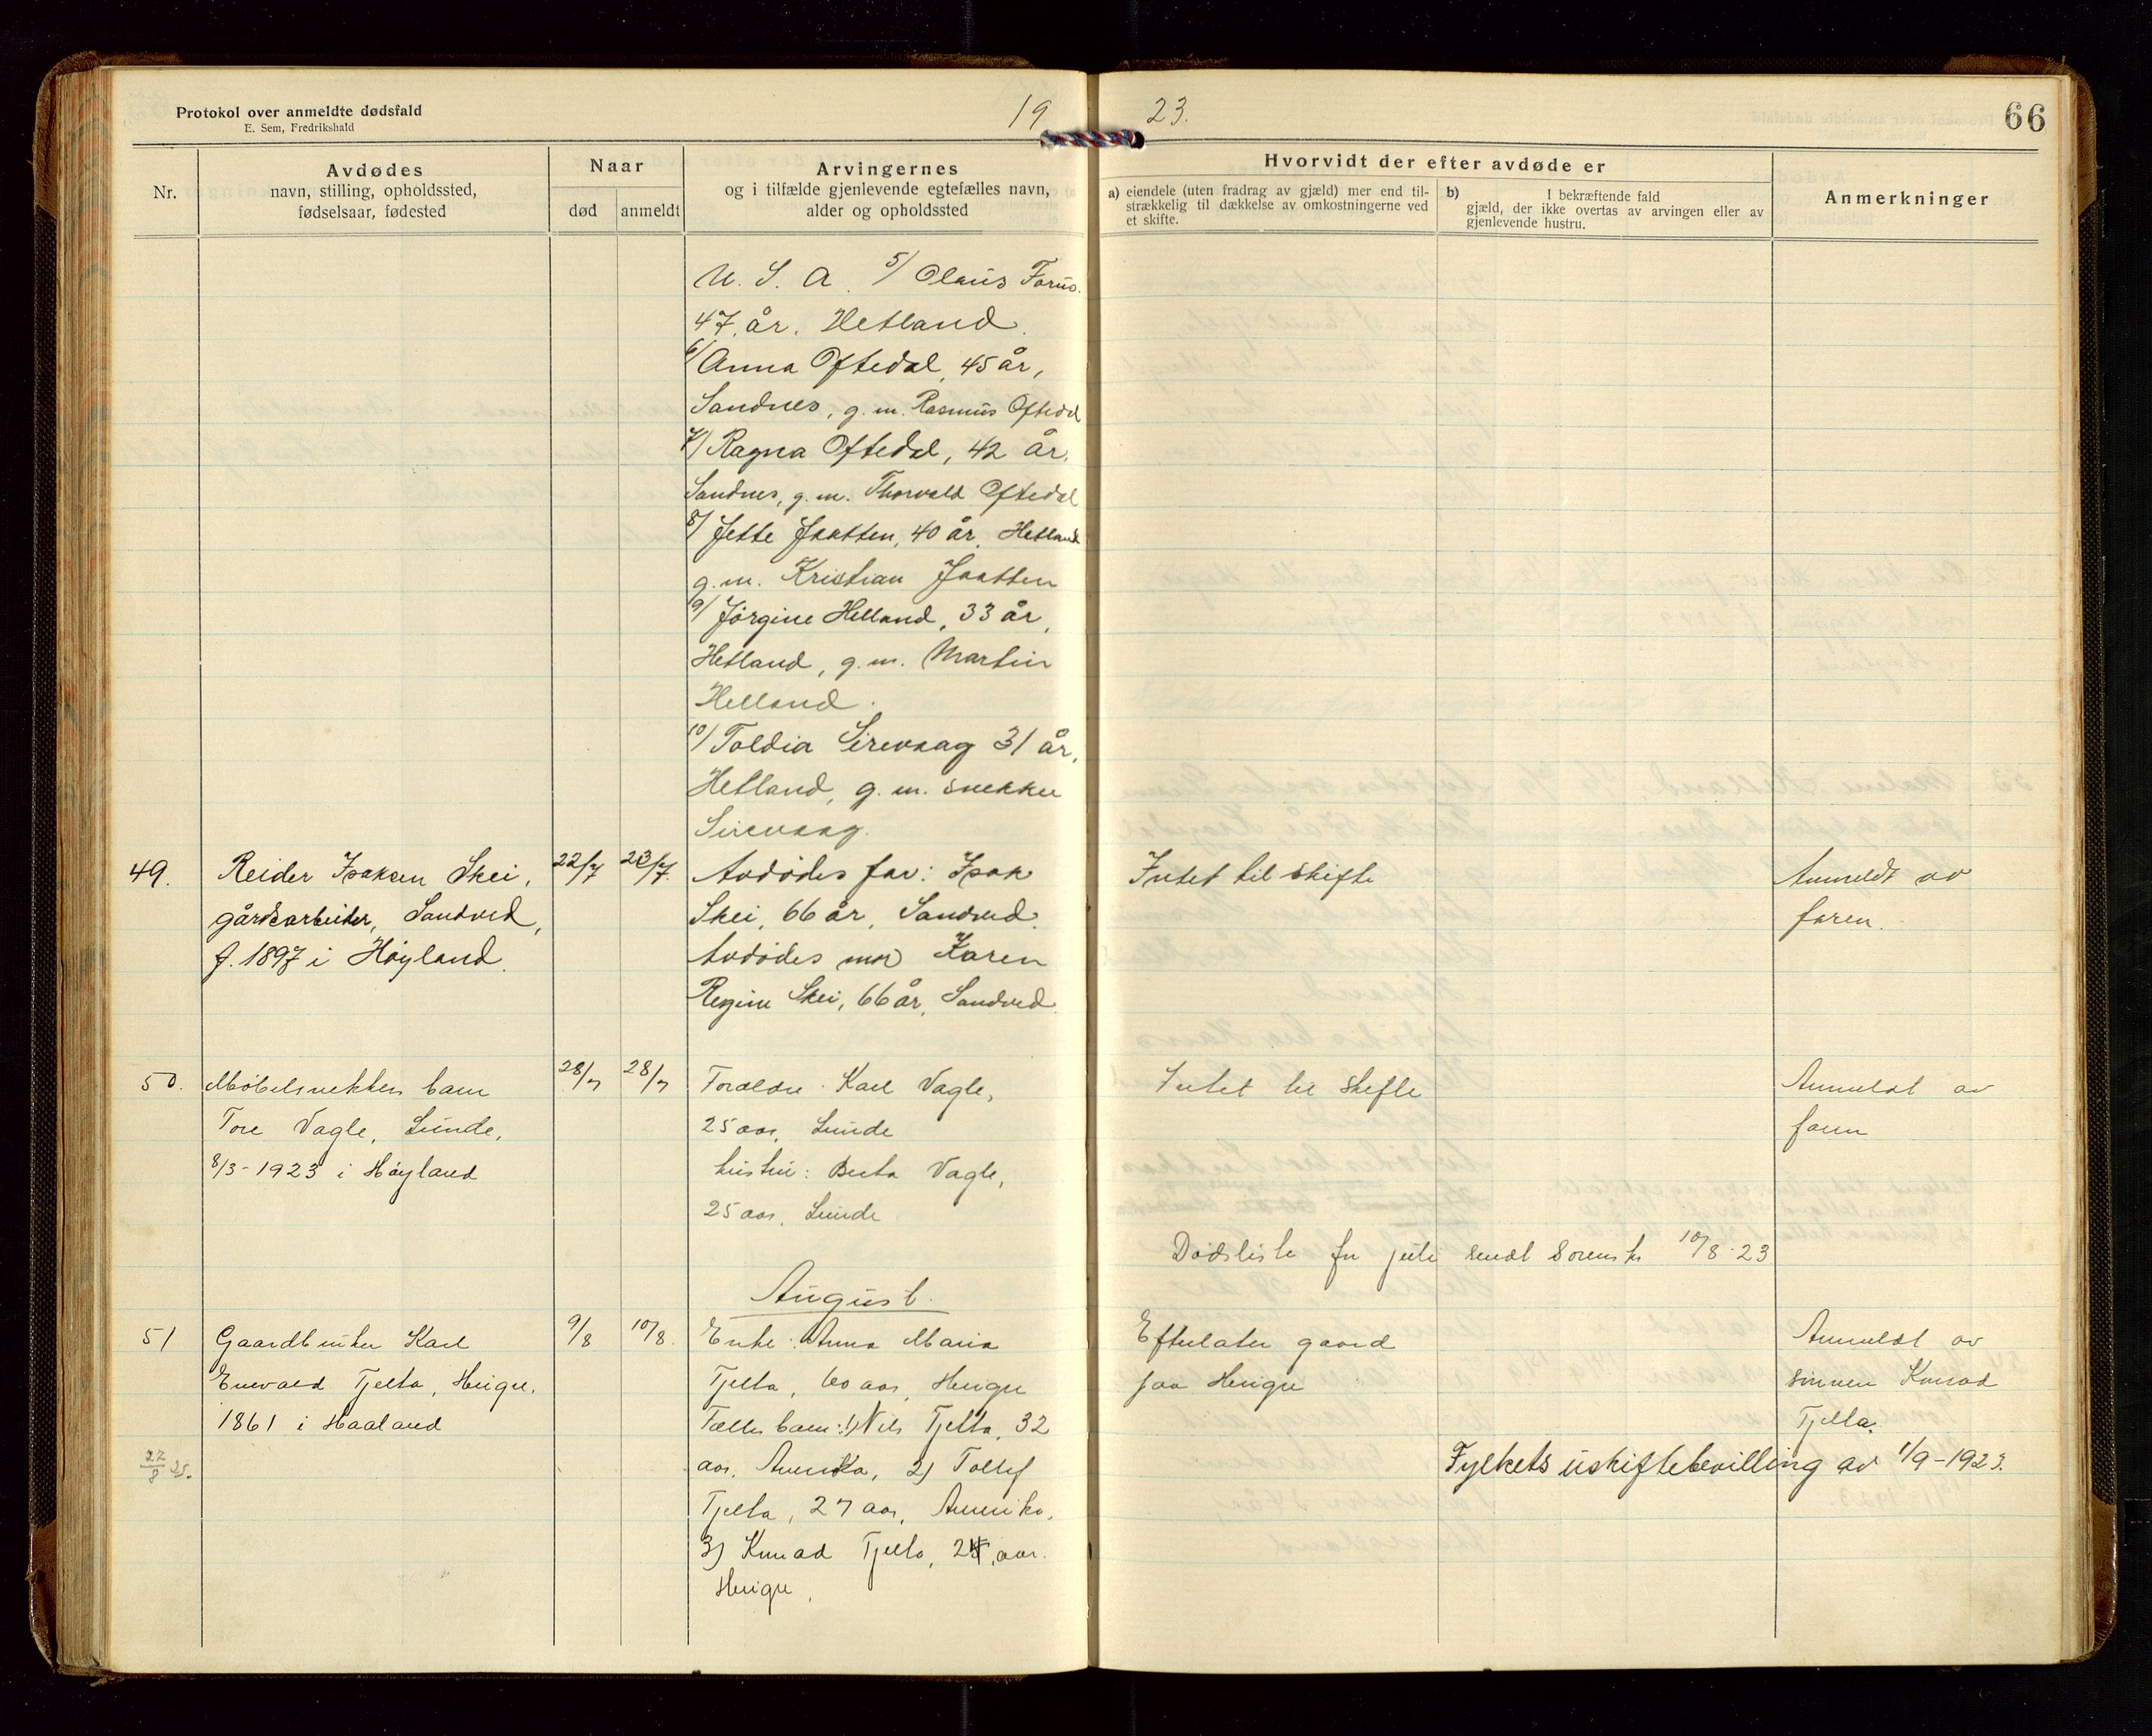 Protokol over anmeldte dødsfald
E. Sem, Fredrikshald
19
23.
66
Nr.
Avdødes
navn, stilling, opholdssted,
fødselsaar, fødested
Naar
død
anmeldt
Arvingernes
og i tilfælde gjenlevende egtefælles navn,
alder og opholdssted
Hvorvidt der efter avdøde er
a) eiendele (uten fradrag av gjæld) mer end til-
strækkelig til dækkelse av omkostningerne ved
et skifte.
b) I bekræftende fald
gjæld, der ikke overtas av arvingen eller av
gjenlevende hustru.
Anmerkninger
U. S. A. 5/ Olaus Forus.
47 år. Hetland.
6/ Anna Oftedal, 45 år,
Sandnes, g. m. Rasmus Oftedal
7/ Ragna Oftedal, 42 år.
Sandnes, g. m. Thorvald Oftedal
8/ Jette Jaatten, 40 år, Hetland
g. m. Kristian Jaatten
9/ Jørgine Helland, 33 år,
Hetland, g. m. Martin
Helland.
10/ Toldia Sirevaag 31 år,
Hetland, g. m. snekker
Sirevaag.
49.
Reider Isaksen Skei,
gårdsarbeider, Sandved,
f. 1897 i Høyland.
22/7
23/7.
Avdødes far: Isak
Skei, 66 år, Sandved.
Avdødes mor Karen
Regine Skei, 66 år, Sandved.
Intet til skifte
Anmeldt av
faren.
50.
Møbelsnekker barn
Tore Vagle, Lunde,
8/3-1923 i Høyland
28/7
28/7
Foreldre: Karl Vagle,
25 aar, Lunde
hustru: Berta Vagle,
25 aar, Lunde
Intet til skifte
Anmeldt av
faren
Dødsliste for juli sendt Sorenskr 10/8-23
August.
51
Gaardbruker Karl
Enevald Tjelta, Heigre,
1861 i Haaland
22/8 25.
9/8
10/8.
Enke: Anna Maria
Tjelta, 60 aar, Heigre
Fælles barn: 1) Nils Tjelta, 32
aar, Amerika, 2) Tollef
Tjelta, 27 aar, Amerika,
3) Konrad Tjelta, 24 aar.
Heigre.
Efterlater gaard
paa Heigre
Anmeldt av
sønnen Konrad
Tjelta.
Fylkets uskiftebevilling av 1/9-1923.